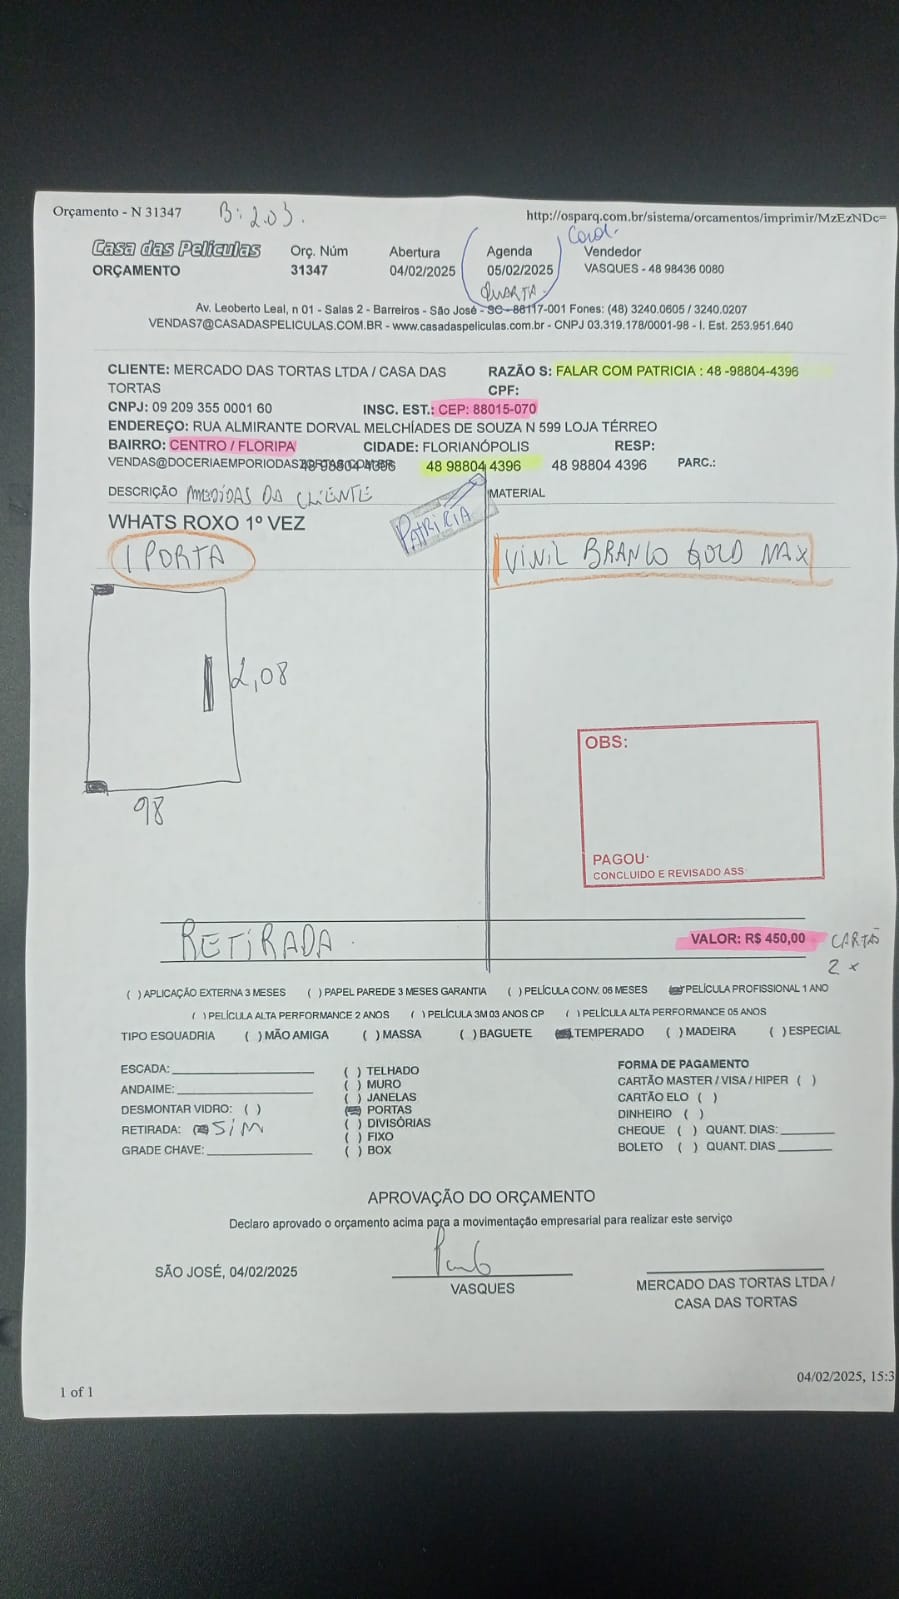 Orçamento - N 31347
B: 203.
http://osparq.com.br/sistema/orcamentos/imprimir/MzEzNDc=
Casa das Películas
ORÇAMENTO
Orç. Núm
31347
Abertura
04/02/2025
Agenda
05/02/2025
QUARTA
Vendedor
VASQUES - 48 98436 0080
Av. Leoberto Leal, n 01 - Salas 2 - Barreiros - São José - SC - 88117-001 Fones: (48) 3240.0605 / 3240.0207
VENDAS7@CASADASPELICULAS.COM.BR - www.casadaspeliculas.com.br - CNPJ 03.319.178/0001-98 - I. Est. 253.951.640
CLIENTE: MERCADO DAS TORTAS LTDA / CASA DAS TORTAS
RAZÃO S: FALAR COM PATRICIA : 48 -98804-4396
CPF:
CNPJ: 09 209 355 0001 60
INSC. EST.: CEP: 88015-070
ENDEREÇO: RUA ALMIRANTE DORVAL MELCHÍADES DE SOUZA N 599 LOJA TÉRREO
BAIRRO: CENTRO / FLORIPA
CIDADE: FLORIANÓPOLIS
RESP:
48 98804 4396
48 98804 4396
48 98804 4396
PARC.:
DESCRIÇÃO MEDIDAS DA CLIENTE
MATERIAL
WHATS ROXO 1º VEZ
PATRICIA
1 PORTA
VINIL BRANCO GOLD MAX
2,08
98
OBS:
PAGOU:
CONCLUIDO E REVISADO ASS
RETIRADA.
VALOR: R$ 450,00
CARTÃO
2 x
( ) APLICAÇÃO EXTERNA 3 MESES ( ) PAPEL PAREDE 3 MESES GARANTIA ( ) PELÍCULA CONV. 06 MESES PELÍCULA PROFISSIONAL 1 ANO
( ) PELÍCULA ALTA PERFORMANCE 2 ANOS ( ) PELÍCULA 3M 03 ANOS CP ( ) PELÍCULA ALTA PERFORMANCE 05 ANOS
TIPO ESQUADRIA ( ) MÃO AMIGA ( ) MASSA ( ) BAGUETE TEMPERADO ( ) MADEIRA ( ) ESPECIAL
ESCADA:
ANDAIME:
DESMONTAR VIDRO: ( )
RETIRADA: SIM
GRADE CHAVE:
( ) TELHADO
( ) MURO
( ) JANELAS
PORTAS
( ) DIVISÓRIAS
( ) FIXO
( ) BOX
FORMA DE PAGAMENTO
CARTÃO MASTER / VISA / HIPER ( )
CARTÃO ELO ( )
DINHEIRO ( )
CHEQUE ( ) QUANT. DIAS:
BOLETO ( ) QUANT. DIAS
APROVAÇÃO DO ORÇAMENTO
Declaro aprovado o orçamento acima para a movimentação empresarial para realizar este serviço
SÃO JOSÉ, 04/02/2025
VASQUES
MERCADO DAS TORTAS LTDA /
CASA DAS TORTAS
1 of 1
04/02/2025, 15:3